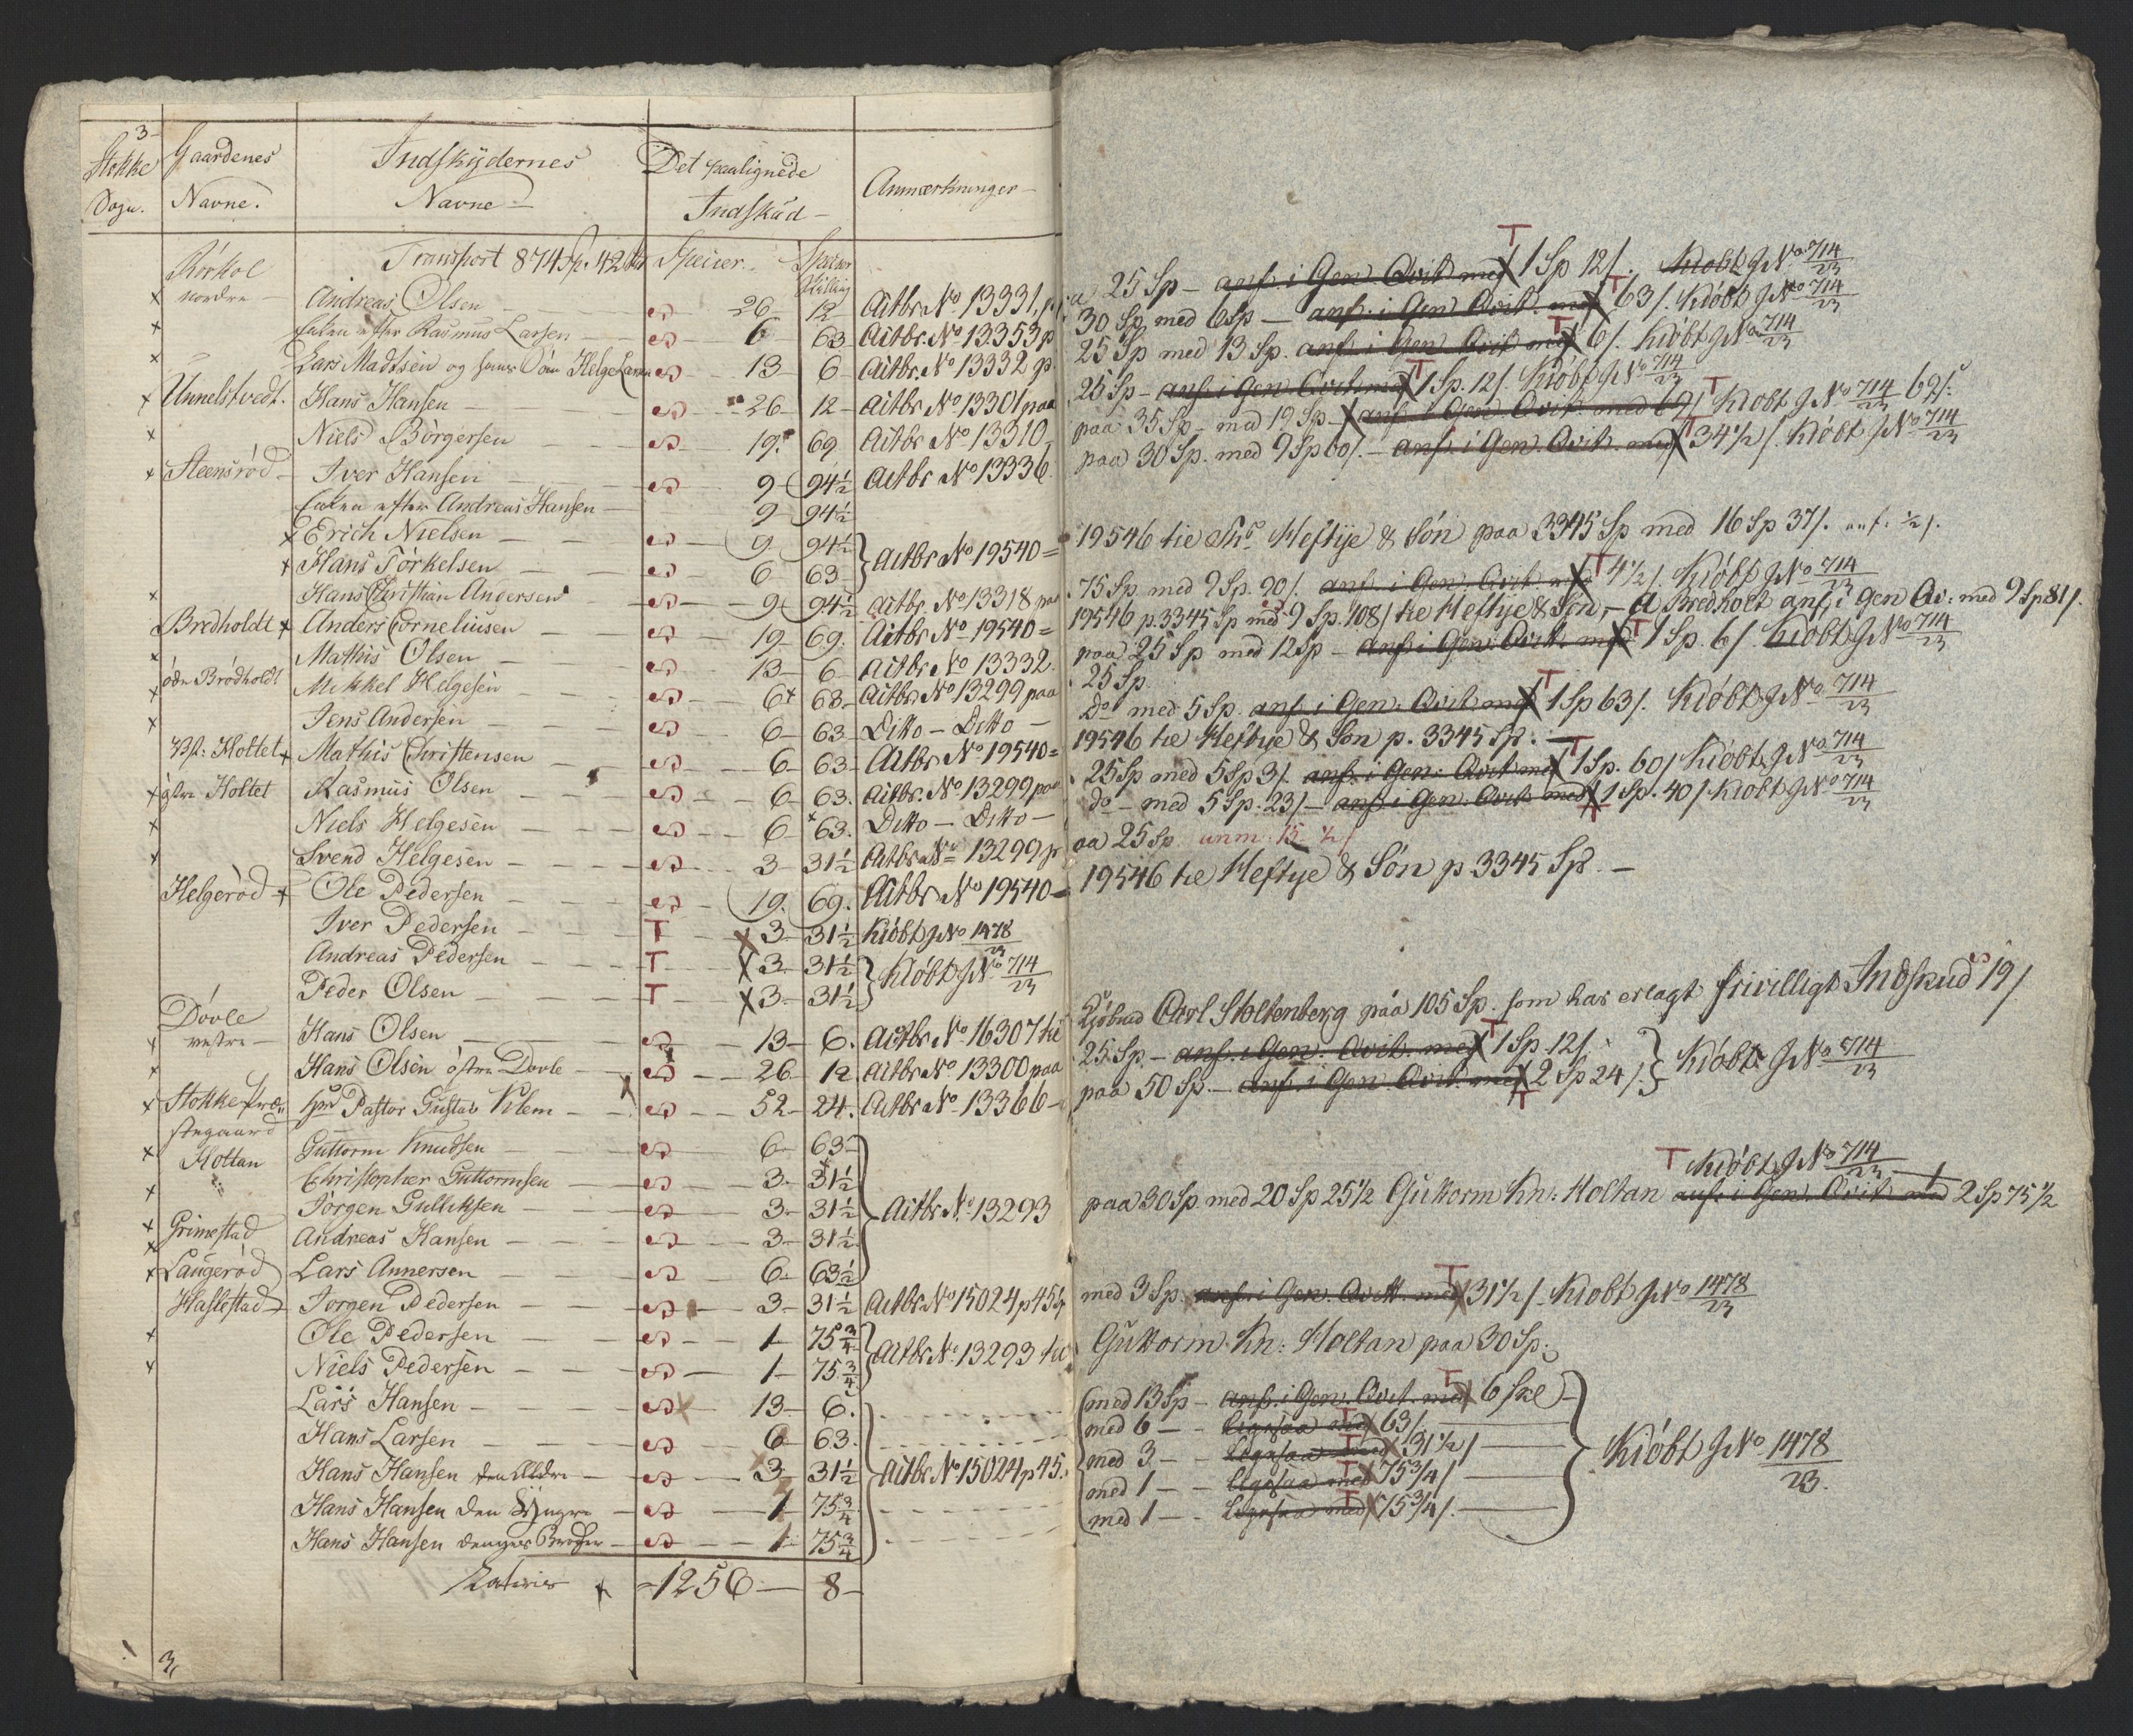 3-
Stokke Sogn.
Gaardenes Navne.
Indskydernes Navne
Det paalignede Indskud
Anmærkninger
Transport 874 Sp. 42
Specier
Nordre Andreas Olsen 26 12 Actbr. No 13331, p
a 25 Sp - anf. i Gen. Qvit. med 1 Sp 12/. Kiöbt J No 714/23
Enken efter Rasmus Larsen 6 63 Actbr. No 13353 p
30 Sp med 6 Sp - anf. i Gen. Qvit. med 63/. Kiöbt J No 714/23
Lars Madtsen og hans Sön Helge Larsen 13 6 Actbr. No 13332 p.
25 Sp med 13 Sp. anf. i Gen. Qvit med 6/. Kiöbt J No 714/23
Unnelstvedt. Hans Hansen 26 12 Actbr No 13301 paa
25 Sp - anf. i Gen. Qvit. med 1 Sp. 12/. Kiöbt J No 714/23
Niels Börgersen 19 69 Actbr No 13310
paa 35 Sp - med 19 Sp - anf. i Gen. Qvit. med 69/. Kiobt J No 714/23 69/.
Steensröd Iver Hansen 9 94½ Actbr No 13336
paa 30 Sp. med 9 Sp 60/. - anf. i Gen. Qvit. med 34½/. Kiöbt J No 714/23
Enken efter Andreas Hansen 9 94½
Erich Nielsen 9 94½
Hans Törkelsen 6 63
Actbr No 19540=
19546 tie Ths. Heftye & Sön paa 3345 Sp med 16 Sp 37/. anf. ½/.
Hans Christian Andersen 9 94½ Actbr. No 13318 paa
75 Sp. med 9 Sp. 90/. anf. i Gen. Qvit. med 4½/. Kiöbt J No 714/23
Bredholdt Anders Corneliusen 19 69. Actbr No 19540=
19546 p. 3345 Sp med 9 Sp. 108/ tie Heftye & Sön, - A Bredholt anf. i gen Qv: med 9 Sp 81/.
Mathis Olsen 13 6 Actbr No 13332.
paa 25 Sp med 12 Sp - anf. i Gen. Qvit. med 1 Sp. 6/. Kiöbt J No 714/23
Brödholdt Mikkel Helgesen 6 63 Actbr. No 13299 paa
25 Sp.
Jens Andersen 6 63 Ditto - Ditto -
Do med 5 Sp. anf. i Gen. Qvit med 1 Sp 63/. Kiöbt J No 714/23
Holtet Mathis Christensen 6 63 Actbr. No 19540=
19546 tie Heftye & Son p. 3345 Sp. -
östre Holtet Rasmus Olsen 6 63. Actbr. No 13299 paa
25 Sp med 5 Sp 3/. anf. i Gen. Qvit med 1 Sp. 60/ Kiöbt J No 714/23
Niels Helgesen 6 63. Ditto - Ditto -
do - med 5 Sp. 23/ - anf. i Gen. Qvit. med 1 Sp. 40/. Kiobt J No 714/23
Svend Helgesen 3 31½ Actbr No 13299 p
aa 25 Sp
Helgeröd Ole Pedersen 19. 69. Actbr No 19540=
19546 tie Heftye & Sön p 3345 Sp. -
Iver Pedersen T 3 31½ Kiöbt J No 1478/23
Andreas Pedersen T 3 31½
Peder Olsen T 3 31½
Kiöbt J No 714/23
Dövle vestre Hans Olsen 13 6. Actbr. No 16307 tie
Kjöbmd Carl Stoltenberg paa 105 Sp. som har erlagt frivilligt Indskud 19/
Hans Olsen östre Dovle 26 12 Actbr No 13300 paa
25 Sp. - anf. i Gen. Qvit. med 1 Sp 12/.
Stokke Præstegaard Hr. Pastor Gustav Blom 52 24. Actbr No 13366
paa 50 Sp. - anf. i Gen. Qvit. med 2 Sp 24/.
Kiöbt J No 714/23
Holtan Guttorm Knudsen 6 63
Christopher Guttormsen 3 31½
Jörgen Gulliksen 3 31½
Grimestad Andreas Hansen 3 31½
Laugeröd Lars Annersen 6 63½
Actbr No 13293
T Kiöbt J No 714/23
paa 30 Sp. med 20 Sp 25½ Guttorm Kn: Holtan anf. i Gen. Qvit med 2 Sp 75½
Haslestad Jorgen Pedersen 3 31½ Actbr No 15024 p 45 Sp
med 3 Sp. anf. i Gen. Qvitt. med 31½/. Kiobt J No 1478/23
Ole Pedersen 1 75¾
Niels Pedersen 1 75¾
Actbr No 13293 tie
Guttorm Kn: Holtan paa 30 Sp.
Lars Hansen 13 6.
med 13 Sp - anf. i Gen. Qvit. med 6 Skl
Hans Larsen 6 63.
med 6 - - ligesaa med 63/.
Hans Hansen den ældre 3 31½ Actbr No 15024 p 45.
med 3 - - Ligesaa med 31½/
Hans Hansen den Yngre 1 75¾
med 1 - - ligesaa med 75¾/
Hans Hansen Broder 1 75¾
med 1 - - Ligesaa med 75¾/.
Kiöbt J No 1478/23.
Lateris 1256 8